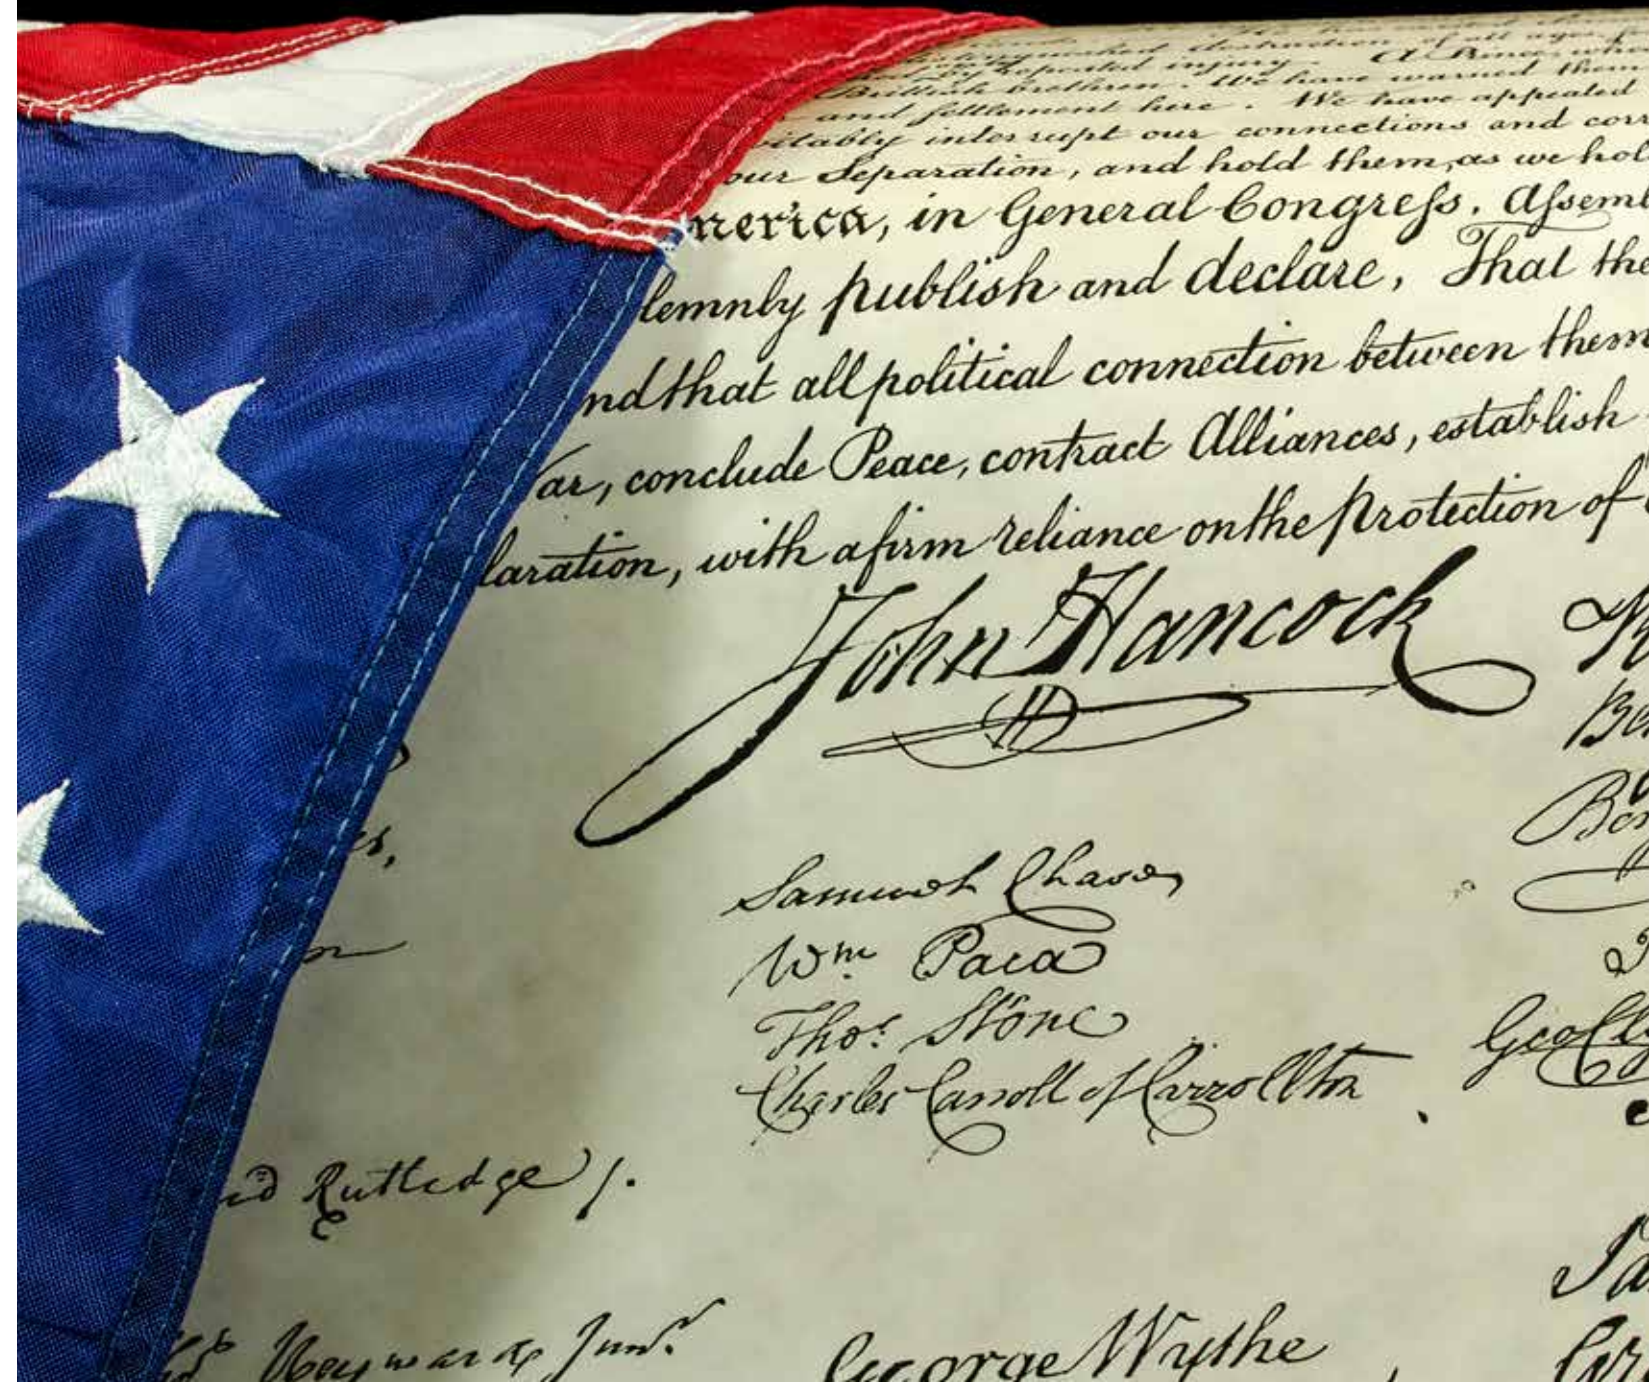 undistinguished destruction of all ages,
by repeated injury. A Prince, who
Brittish brethren. We have warned them
and settlement here. We have appealed
itably interrupt our connections and corr
our Separation, and hold them, as we hol
nerica, in General Congreſs, Aſsembl
lemnly publish and declare, That the
nd that all political connection between them
ar, conclude Peace, contract Alliances, establish
laration, with a firm reliance on the protection of
John Hancock
Samuel Chase
Wm Paca
Thos. Stone
Charles Carroll of Carrollton
Geo Cl
d Rutledge /.
Heyward Junr.
George Wythe